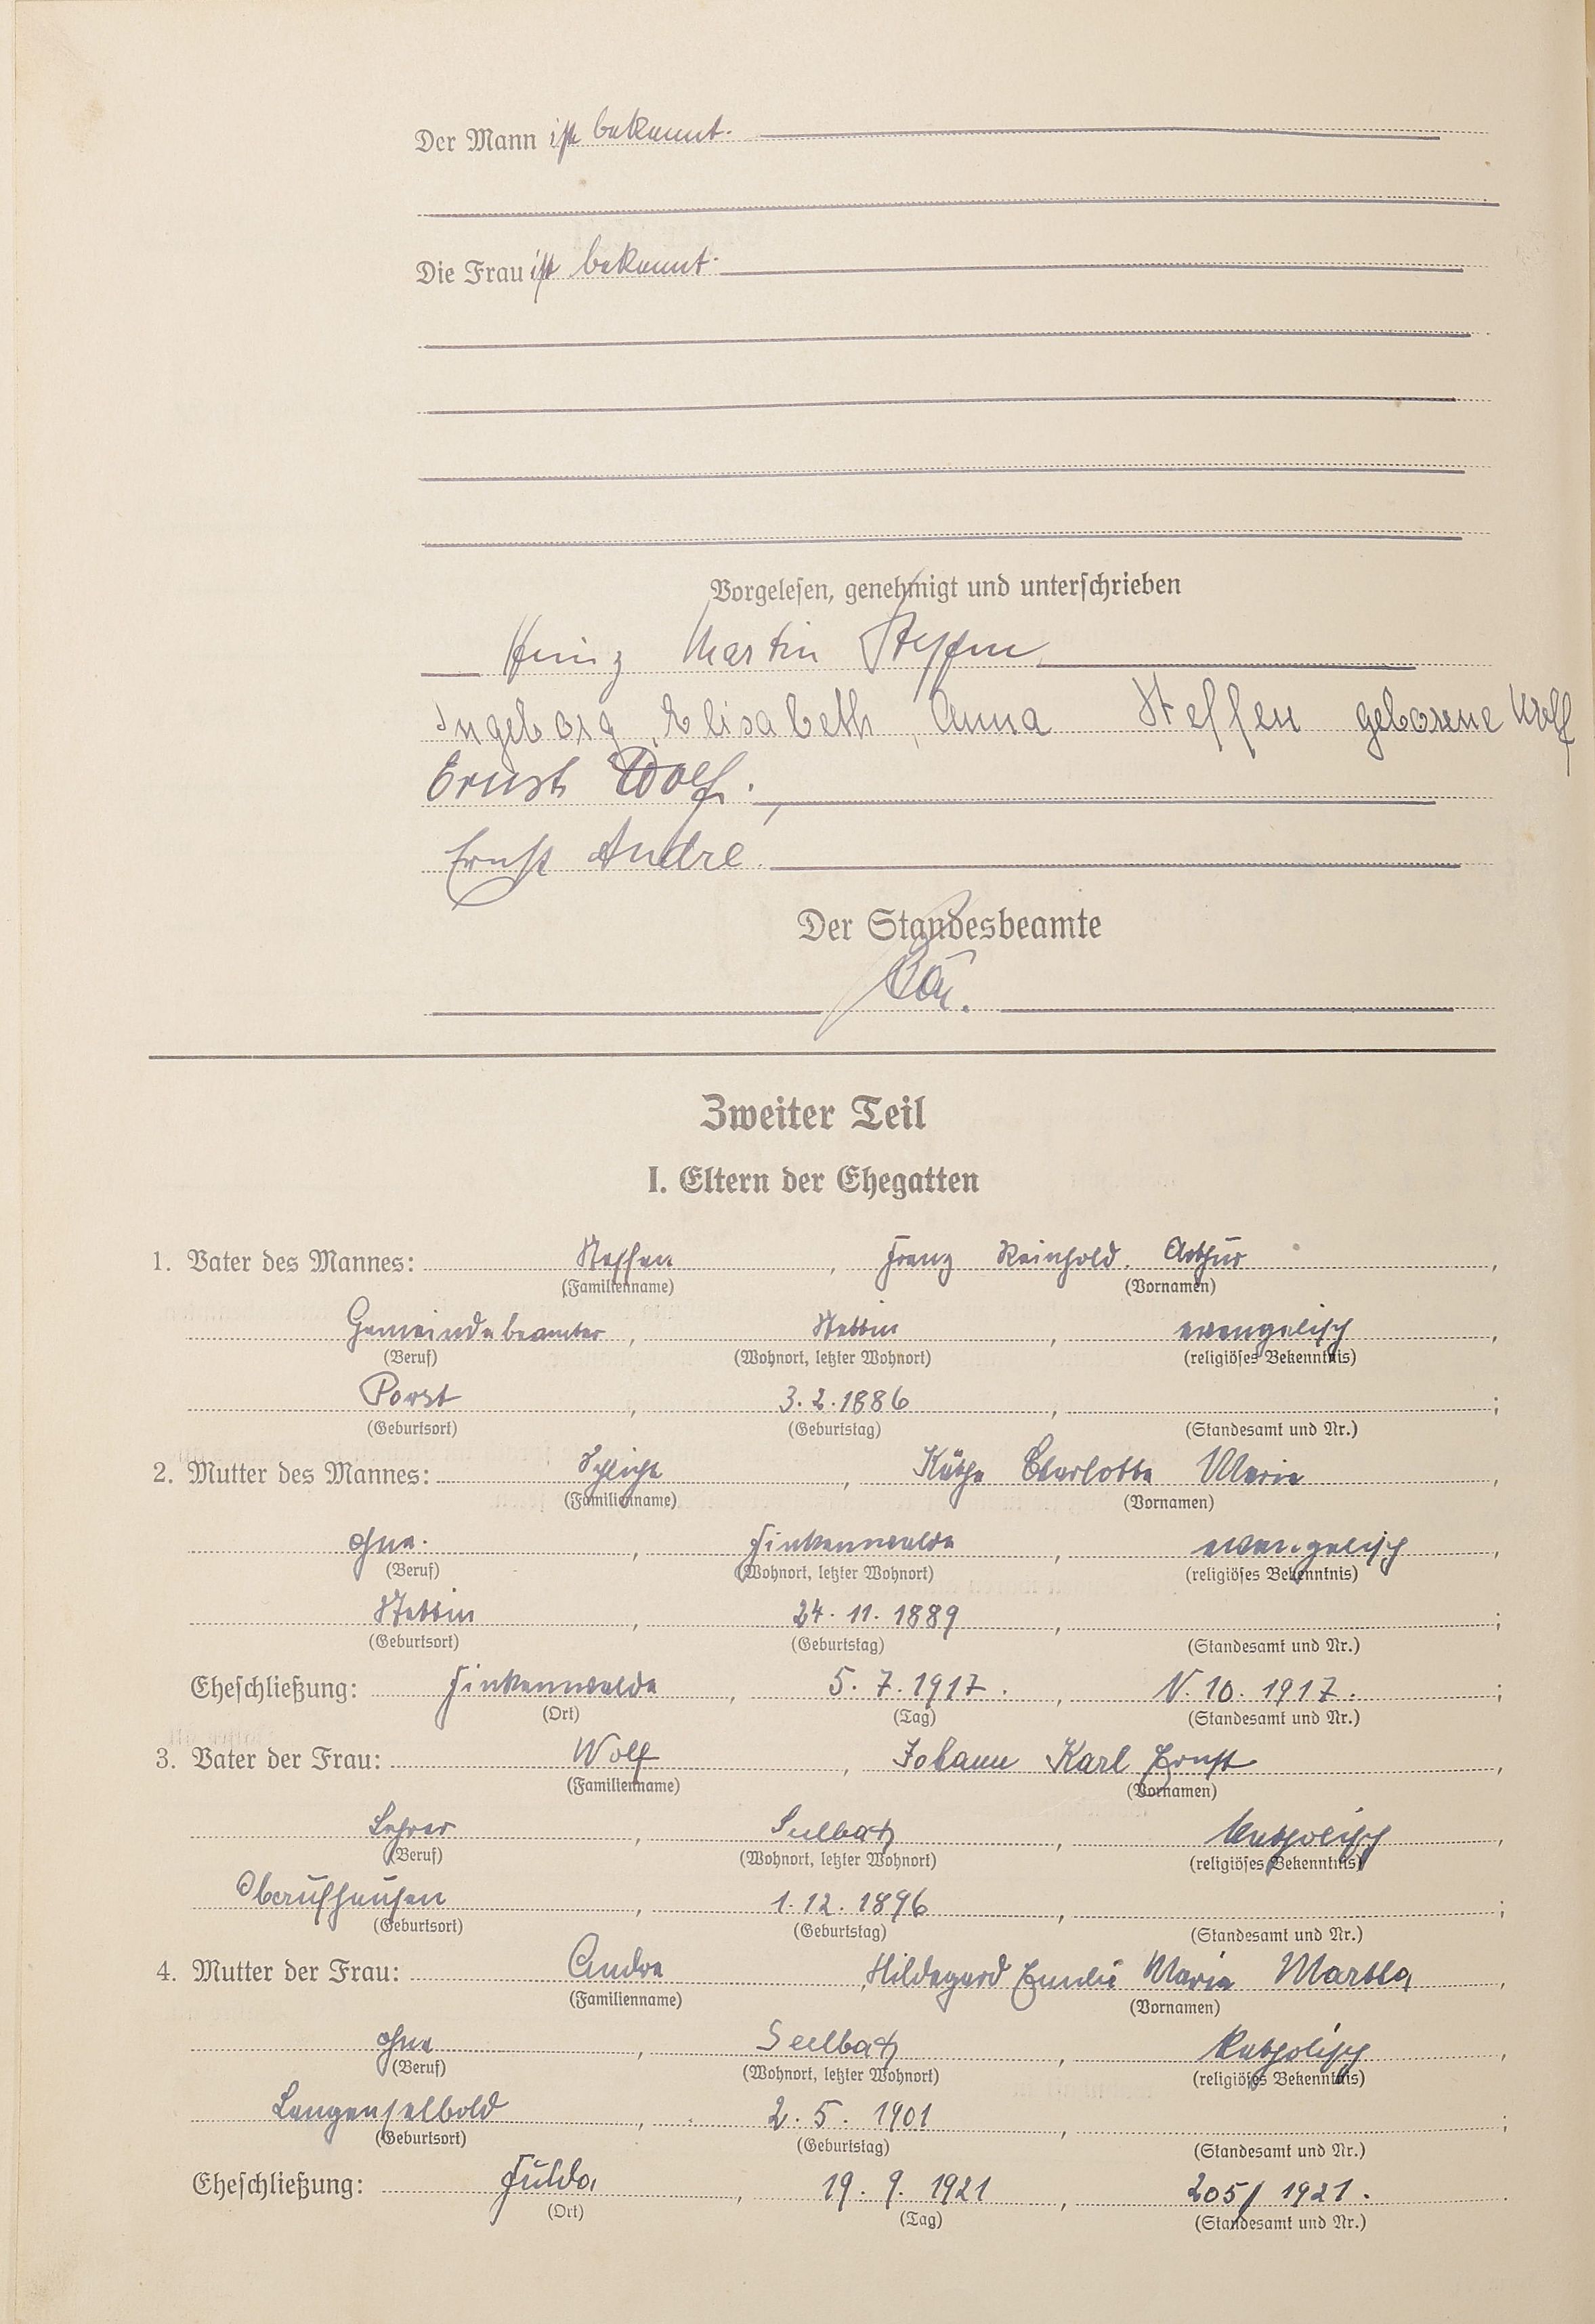 Der Mann ist bekannt.
Die Frau ist bekannt.
Vorgelesen, genehmigt und unterschrieben
Heinz Martin Steffen
Ingeborg, Elisabeth, Anna Steffen geborene Wolf
Ernst Wolf.
Ernst Andre.
Der Standesbeamte
Zweiter Teil
I. Eltern der Ehegatten
1. Vater des Mannes: Steffen, Franz Reinhold Arthur,
(Familienname) (Vornamen)
Gemeindebeamter, Stettin, evangelisch,
(Beruf) (Wohnort, letzter Wohnort) (religiöses Bekenntnis)
Porst, 3.2.1886, ;
(Geburtsort) (Geburtstag) (Standesamt und Nr.)
2. Mutter des Mannes: Schlicht, Käthe Charlotte Marie,
(Familienname) (Vornamen)
ohne, Finkenwalde, evangelisch,
(Beruf) (Wohnort, letzter Wohnort) (religiöses Bekenntnis)
Stettin, 24.11.1889, ;
(Geburtsort) (Geburtstag) (Standesamt und Nr.)
Eheschließung: Finkenwalde, 5.7.1917., N. 10. 1917.;
(Ort) (Tag) (Standesamt und Nr.)
3. Vater der Frau: Wolf, Johann Karl Ernst,
(Familienname) (Vornamen)
Lehrer, Seelbach, katholisch,
(Beruf) (Wohnort, letzter Wohnort) (religiöses Bekenntnis)
Oberufhausen, 1.12.1896, ;
(Geburtsort) (Geburtstag) (Standesamt und Nr.)
4. Mutter der Frau: Andre, Hildegard Emilie Maria Martha,
(Familienname) (Vornamen)
ohne, Seelbach, katholisch,
(Beruf) (Wohnort, letzter Wohnort) (religiöses Bekenntnis)
Langenselbold, 2.5.1901, ;
(Geburtsort) (Geburtstag) (Standesamt und Nr.)
Eheschließung: Fulda, 19.9.1921, 205/1921.
(Ort) (Tag) (Standesamt und Nr.)